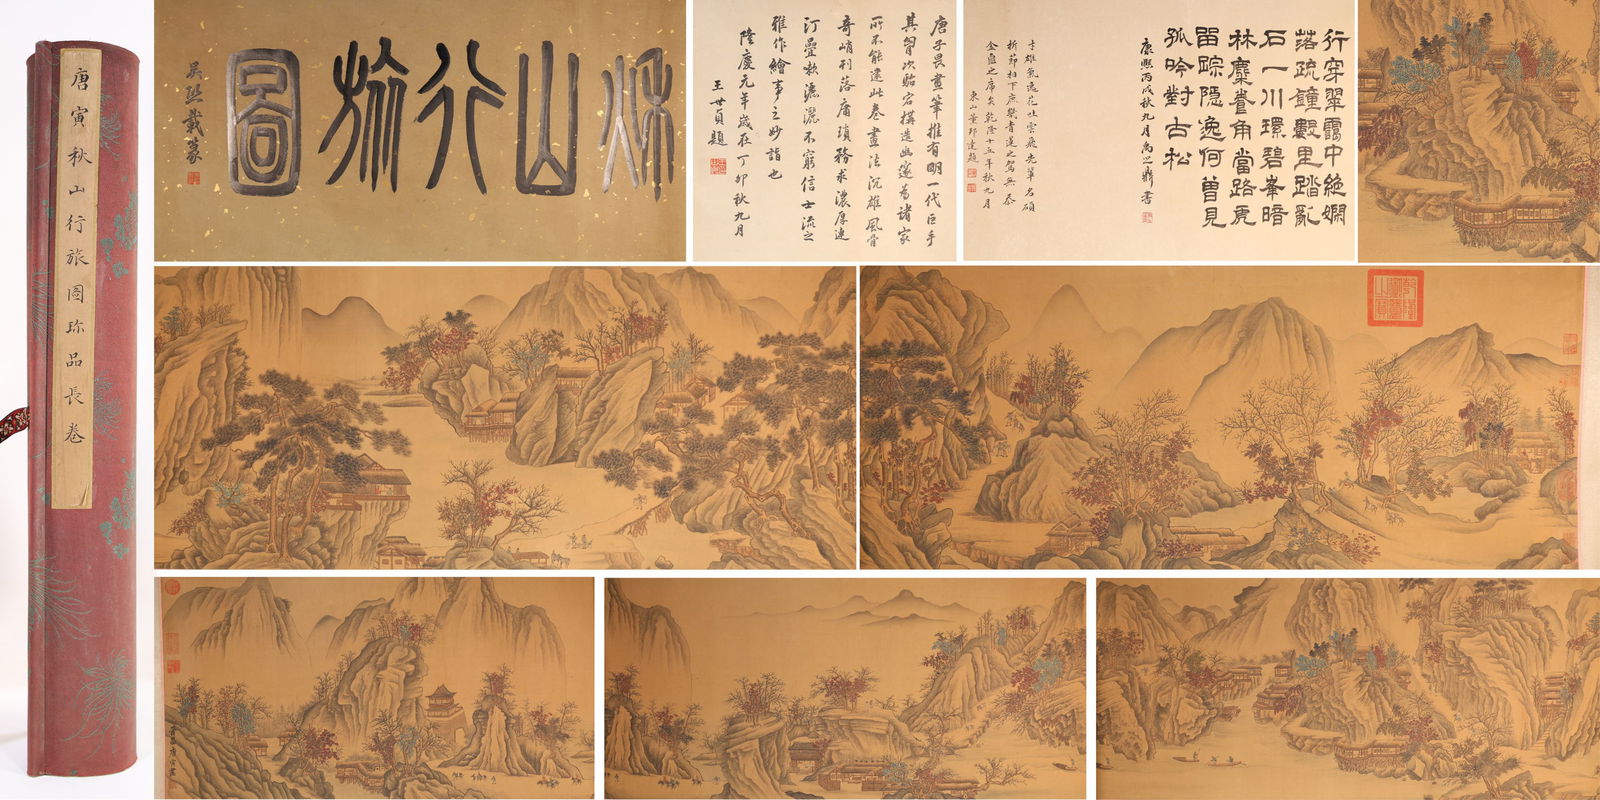 唐寅秋山行旅圖珎品長卷
秌山行旅圖
吳熙載篆
唐子畏畫筆推有明一代巨手
其胷次軼宕構造幽邃為諸家
所不能逮此卷畫法沉雄風骨
奇峭刊落庸瑣務求濃厚連
汀疊嶔濃灑不窮信士流之
雅作繪事之妙詣也
隆慶元年歲在丁卯秋九月
王世貞題
行穿翠靄中絶㵎
落疏鐘數里踏亂
石一川環碧峯暗
林麋養角當路虎
留踪隱逸何曾見
孤吟對古松
康熙丙戌秋九月禹之鼎書
金壘之席矣乾隆十五年秋九月
東山董邦達題